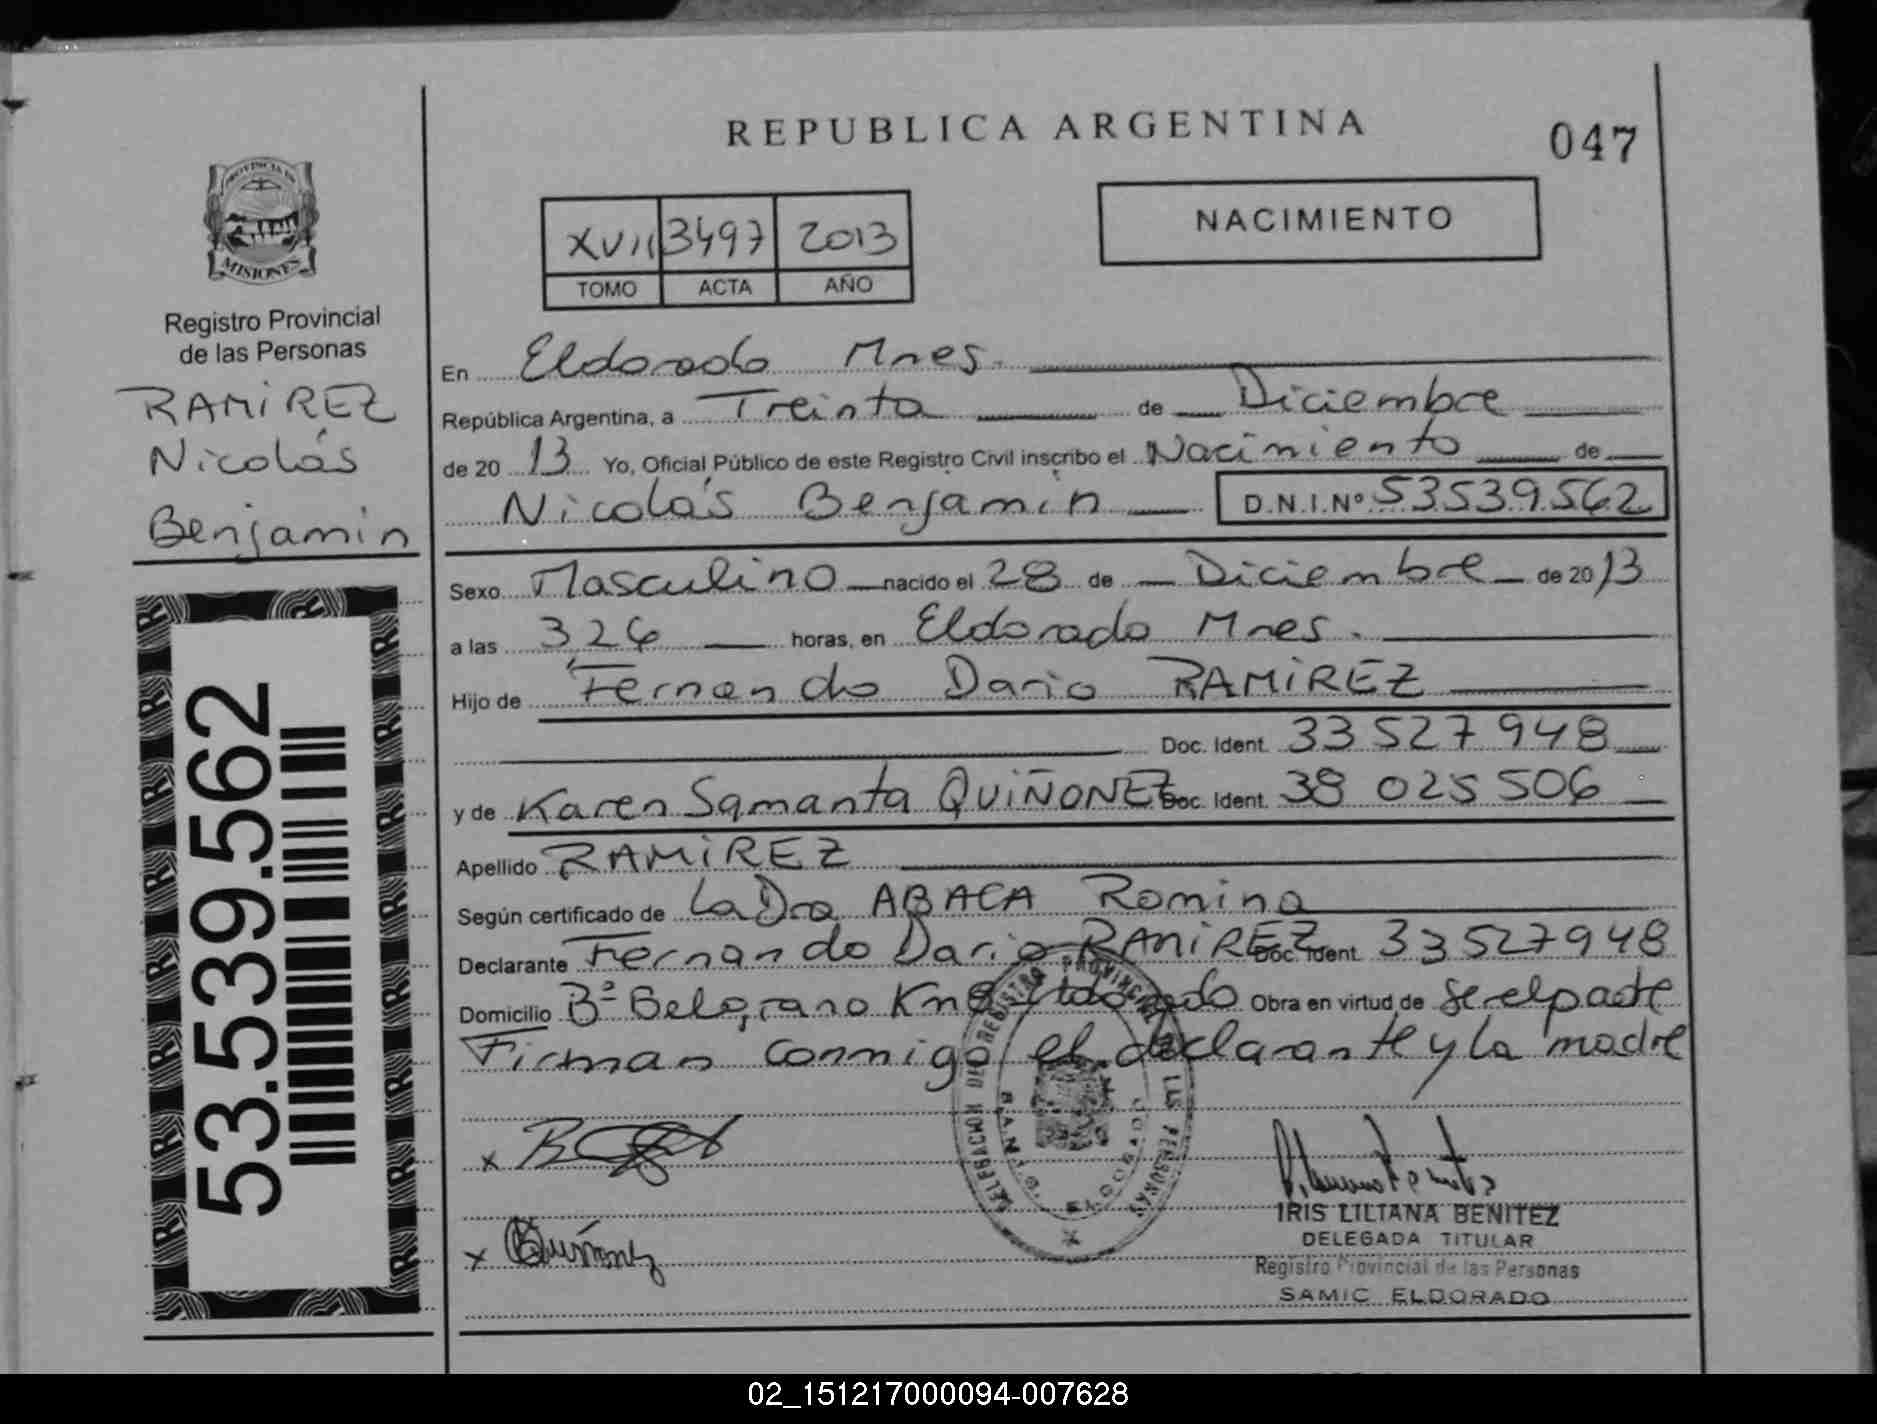 REPUBLICA ARGENTINA
047
NACIMIENTO
XVII 3497 2013
TOMO ACTA AÑO
PROVINCIA DE
MISIONES
Registro Provincial
de las Personas
RAMIREZ
Nicolás
Benjamin
53.539.562
En Eldorado Mnes.
República Argentina, a Treinta de Diciembre
de 20 13 Yo, Oficial Público de este Registro Civil inscribo el Nacimiento de
Nicolás Benjamin D.N.I.Nº 53539562
Sexo Masculino nacido el 28 de Diciembre de 20 13
a las 3,26 horas, en Eldorado Mnes.
Hijo de Fernando Dario RAMIREZ
Doc. Ident. 33 527 948
y de Karen Samanta QUIÑONEZ Doc. Ident. 38 025 506
Apellido RAMIREZ
Según certificado de La Dra ABACA Romina
Declarante Fernando Dario RAMIREZ Doc. Ident. 33527948
Domicilio Bº Belgrano Km Eldorado Obra en virtud de ser el padre
Firman conmigo el declarante y la madre
x
x Quiñonez
DELEGACION DEL REGISTRO PROVINCIAL DE LAS PERSONAS
ELDORADO
IRIS LILIANA BENITEZ
DELEGADA TITULAR
Registro Provincial de las Personas
SAMIC ELDORADO
02_151217000094-007628